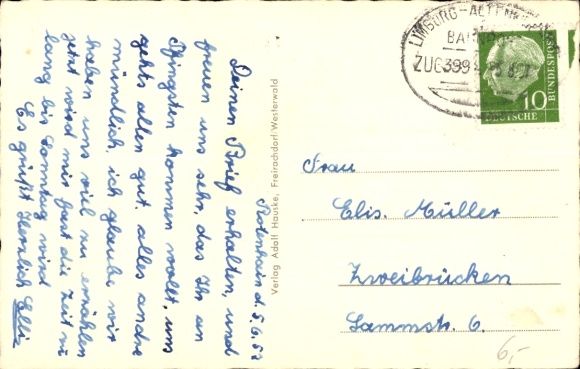 Rotenhain d. 5.6.57
Deinen Brief erhalten, und
freuen uns sehr, das Ihr an
Pfingsten kommen wollt, uns
gehts allen gut. alles andre
mündlich, ich glaube wir
haben uns viel zu erzählen
jetzt wird mir fast die Zeit zu
lang bis Sonntag wird
Es grüßt Herzlich Elli
Verlag Adolf Hauske, Freirachdorf/Westerwald
LIMBURG-ALTENKIRCHEN
BAHNPOST
ZUG 399
DEUTSCHE BUNDESPOST
10
Frau
Elis. Müller
Zweibrücken
Lammstr. 6.
6,-